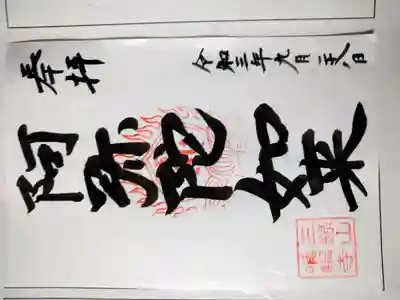 令和三年九月二十八日
阿弥陀如来
奉拝